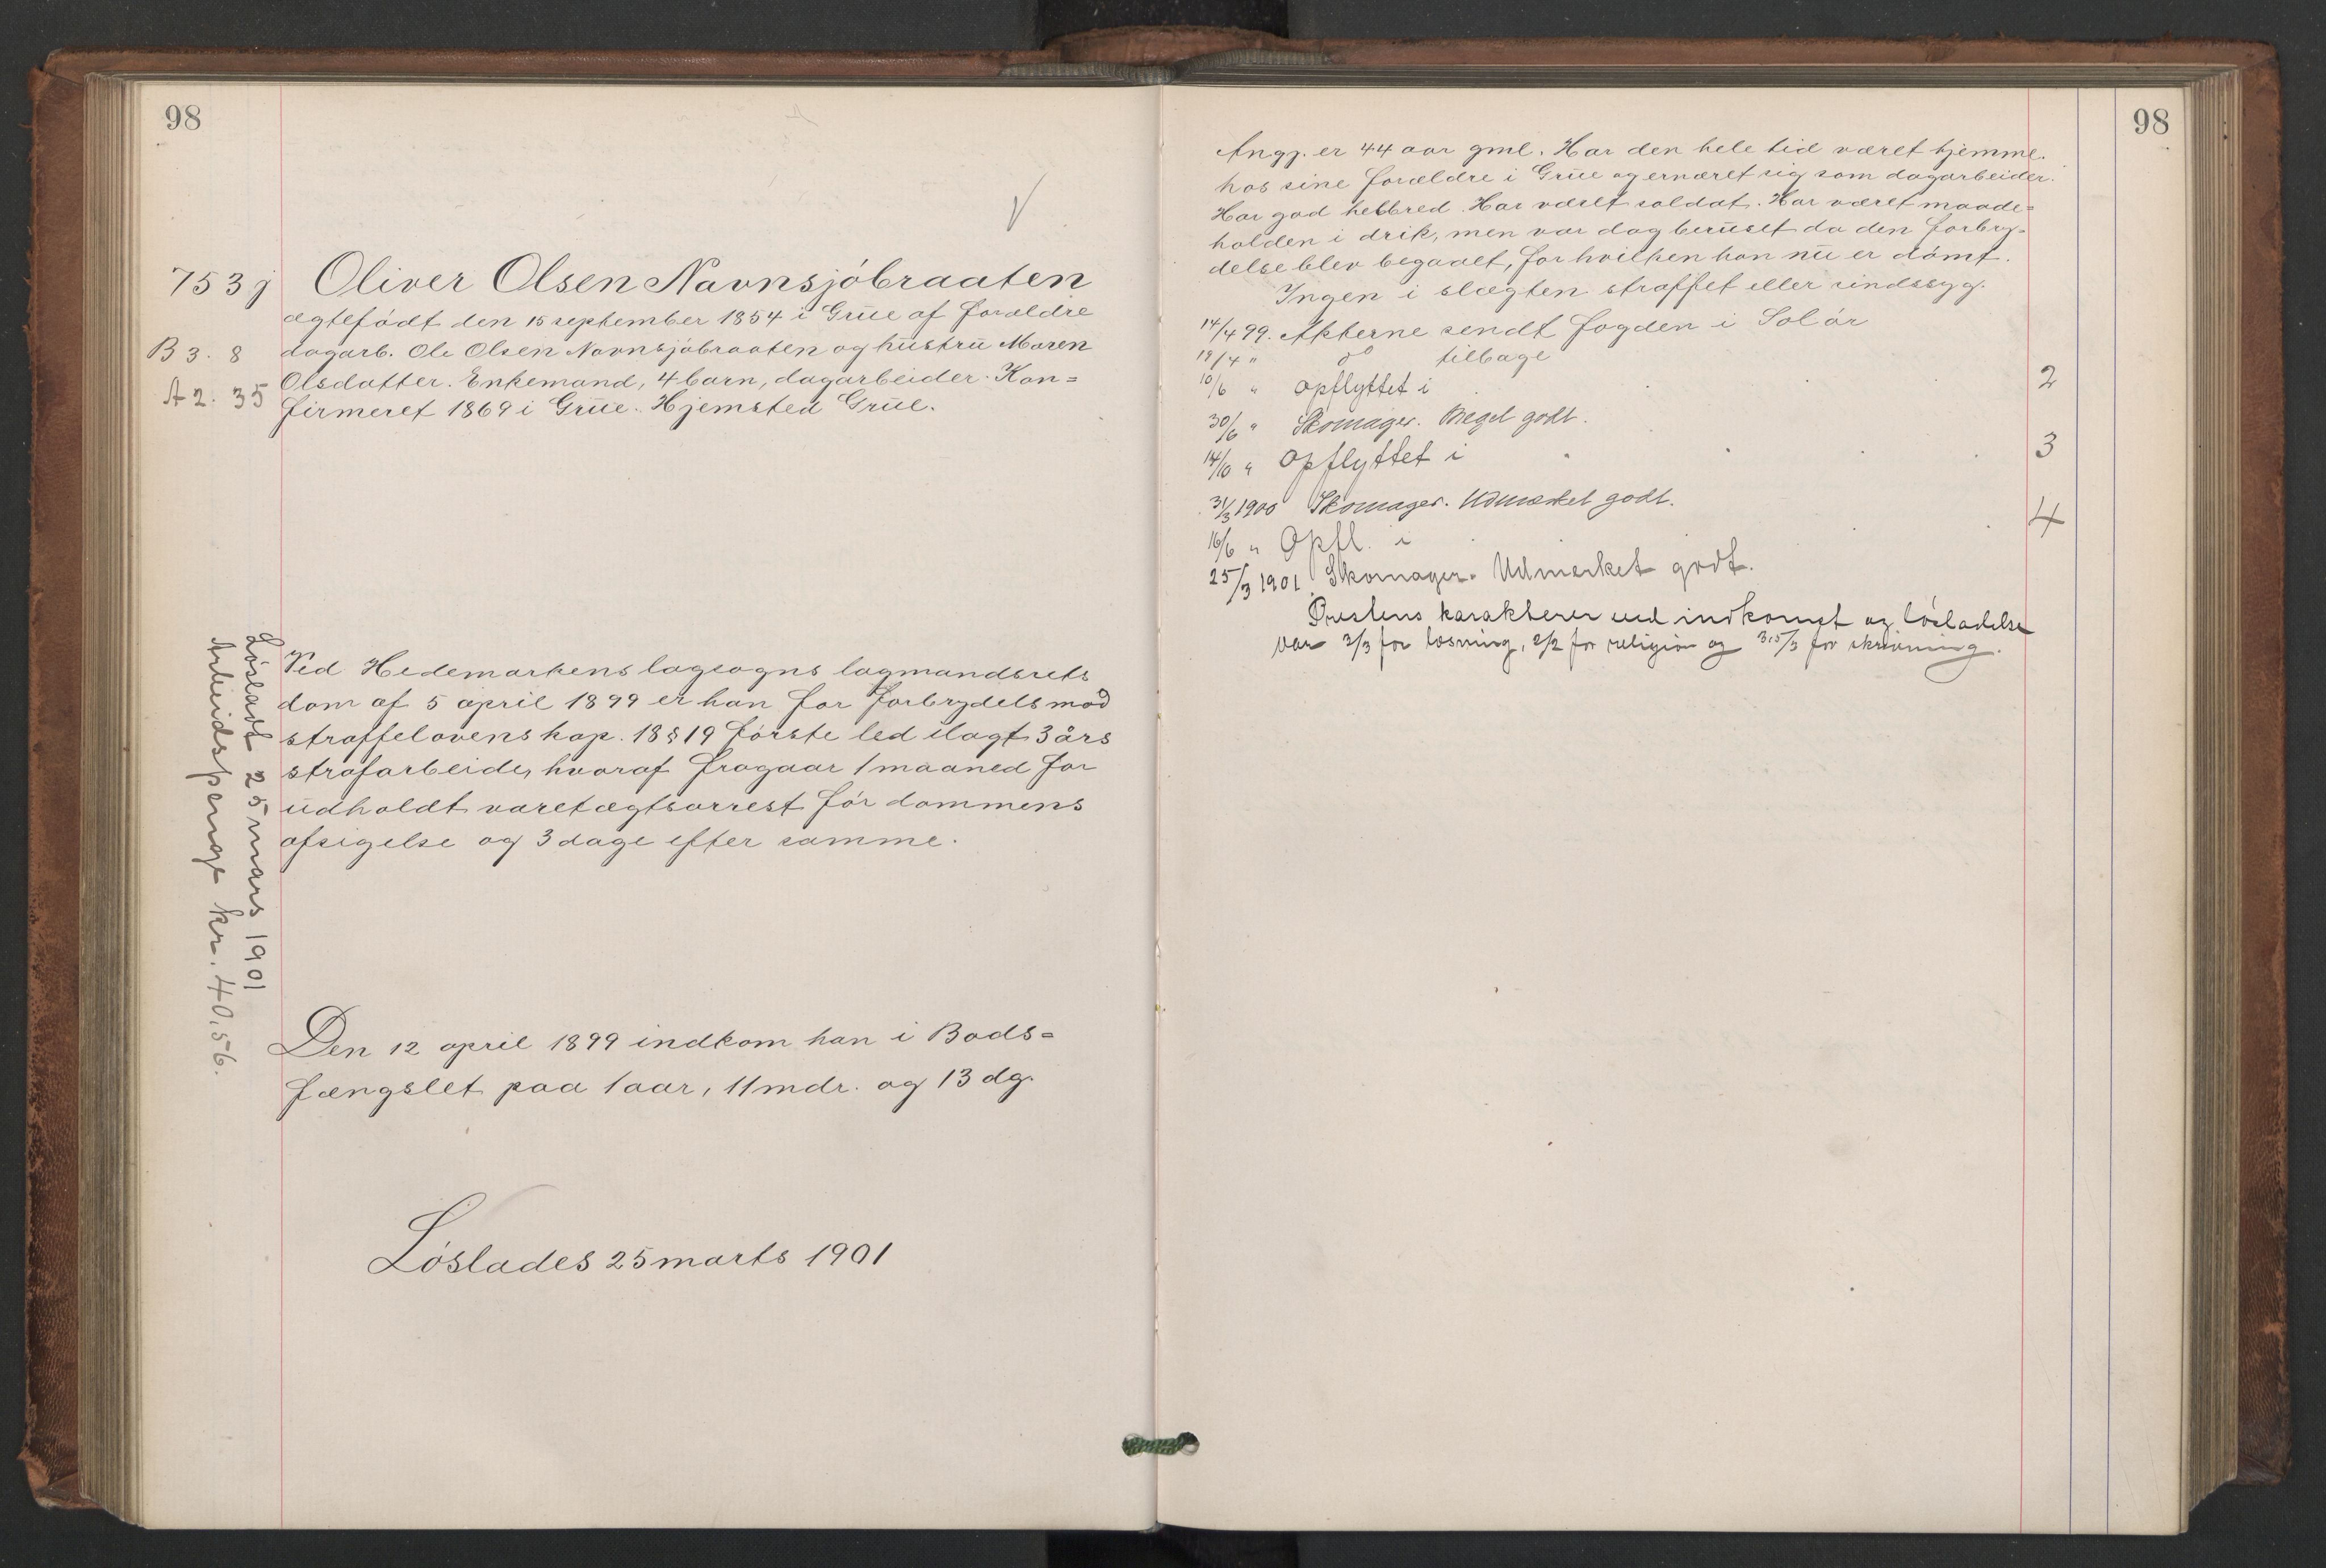 98
753 j Oliver Olsen Navnsjöbraaten
ægtefödt den 15 september 1854 i Grue af forældre
B 3. 8 dagarb. Ole Olsen Navnsjöbraaten og hustru Maren
A 2. 35 Olsdatter. Enkemand, 4 barn, dagarbeider. Kon=
firmeret 1869 i Grue. Hjemsted Grue.
Ved Hedemarkens lagsogns lagmandsrets
dom af 5 april 1899 er han for forbrydels mod
straffelovens kap. 18 § 19 förste led ilagt 3 års
strafarbeide, hvoraf fragaar 1 maaned for
udholdt varetægtsarrest för dommens
afsigelse og 3 dage efter samme.
Lösladt 25 mars 1901
Arbeidspenge kr. 40.56.
Den 12 april 1899 indkom han i Bods=
fængslet paa 1 aar, 11 mdr. og 13 dg.
Löslades 25 marts 1901
98
Angj. er 44 aar gml. Har den hele tid været hjemme
hos sine forældre i Grue og ernæret sig som dagarbeider.
Har god helbred. Har været soldat. Har været maade=
holden i drik, men var dog beruset da den forbry=
delse blev begaaet, for hvilken han nu er dömt.
Ingen i slægten straffet eller sindssyg.
14/4 99. Akterne sendt fogden i Solör
19/4 " do tilbage
10/6 " opflyttet i 2
30/6 " Skomager. Meget godt.
14/10 " Opflyttet i 3
31/3 1900 Skomager. Udmærket godt.
16/6 " Opfl. i 4
25/3 1901. Skomager. Udmerket godt.
Prestens karakterer ved indkomst og lösladelse
var 3/3 for læsning, 2/2 for religion og 3,5/3 for skrivning.